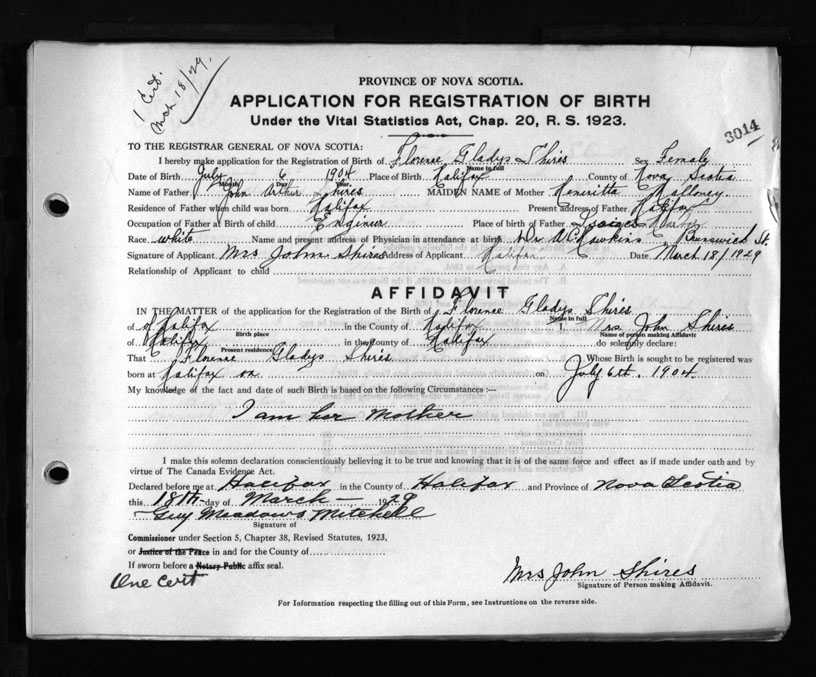 1 Cert.
Mch 18/29.
PROVINCE OF NOVA SCOTIA.
APPLICATION FOR REGISTRATION OF BIRTH
Under the Vital Statistics Act, Chap. 20, R. S. 1923.
3014
TO THE REGISTRAR GENERAL OF NOVA SCOTIA:
I hereby make application for the Registration of Birth of Florence Gladys Shires Sex Female
Name in full
Date of Birth July 6 1904 Place of Birth Halifax County of Nova Scotia
Month Day Year
Name of Father John Arthur Shires MAIDEN NAME of Mother Henrietta Malloney
Residence of Father when child was born Halifax Present address of Father Halifax
Occupation of Father at Birth of child Enginier Place of birth of Father
Race white Name and present address of Physician in attendance at birth Dr Hawkins Brunswick St.
Signature of Applicant Mrs John Shires Address of Applicant Halifax Date March 18/1929
Relationship of Applicant to child
AFFIDAVIT
IN THE MATTER of the application for the Registration of the Birth of Florence Gladys Shires
Name in full
of Halifax in the County of Halifax I, Mrs. John Shires
Birth place Name of person making Affidavit
of Halifax in the County of Halifax do solemnly declare:
Present residence
That Florence Gladys Shires Whose Birth is sought to be registered was
born at Halifax on on July 6th. 1904
My knowledge of the fact and date of such Birth is based on the following Circumstances :—
I am her Mother
I make this solemn declaration conscientiously believing it to be true and knowing that it is of the same force and effect as if made under oath and by
virtue of The Canada Evidence Act.
Declared before me at Halifax in the County of Halifax and Province of Nova Scotia
this 18th day of March 1929
Guy Meadows Mitchell
Signature of
Commissioner under Section 5, Chapter 38, Revised Statutes, 1923,
or Justice of the Peace in and for the County of
If sworn before a Notary Public affix seal.
One cert
Mrs John Shires
Signature of Person making Affidavit.
For Information respecting the filling out of this Form, see Instructions on the reverse side.